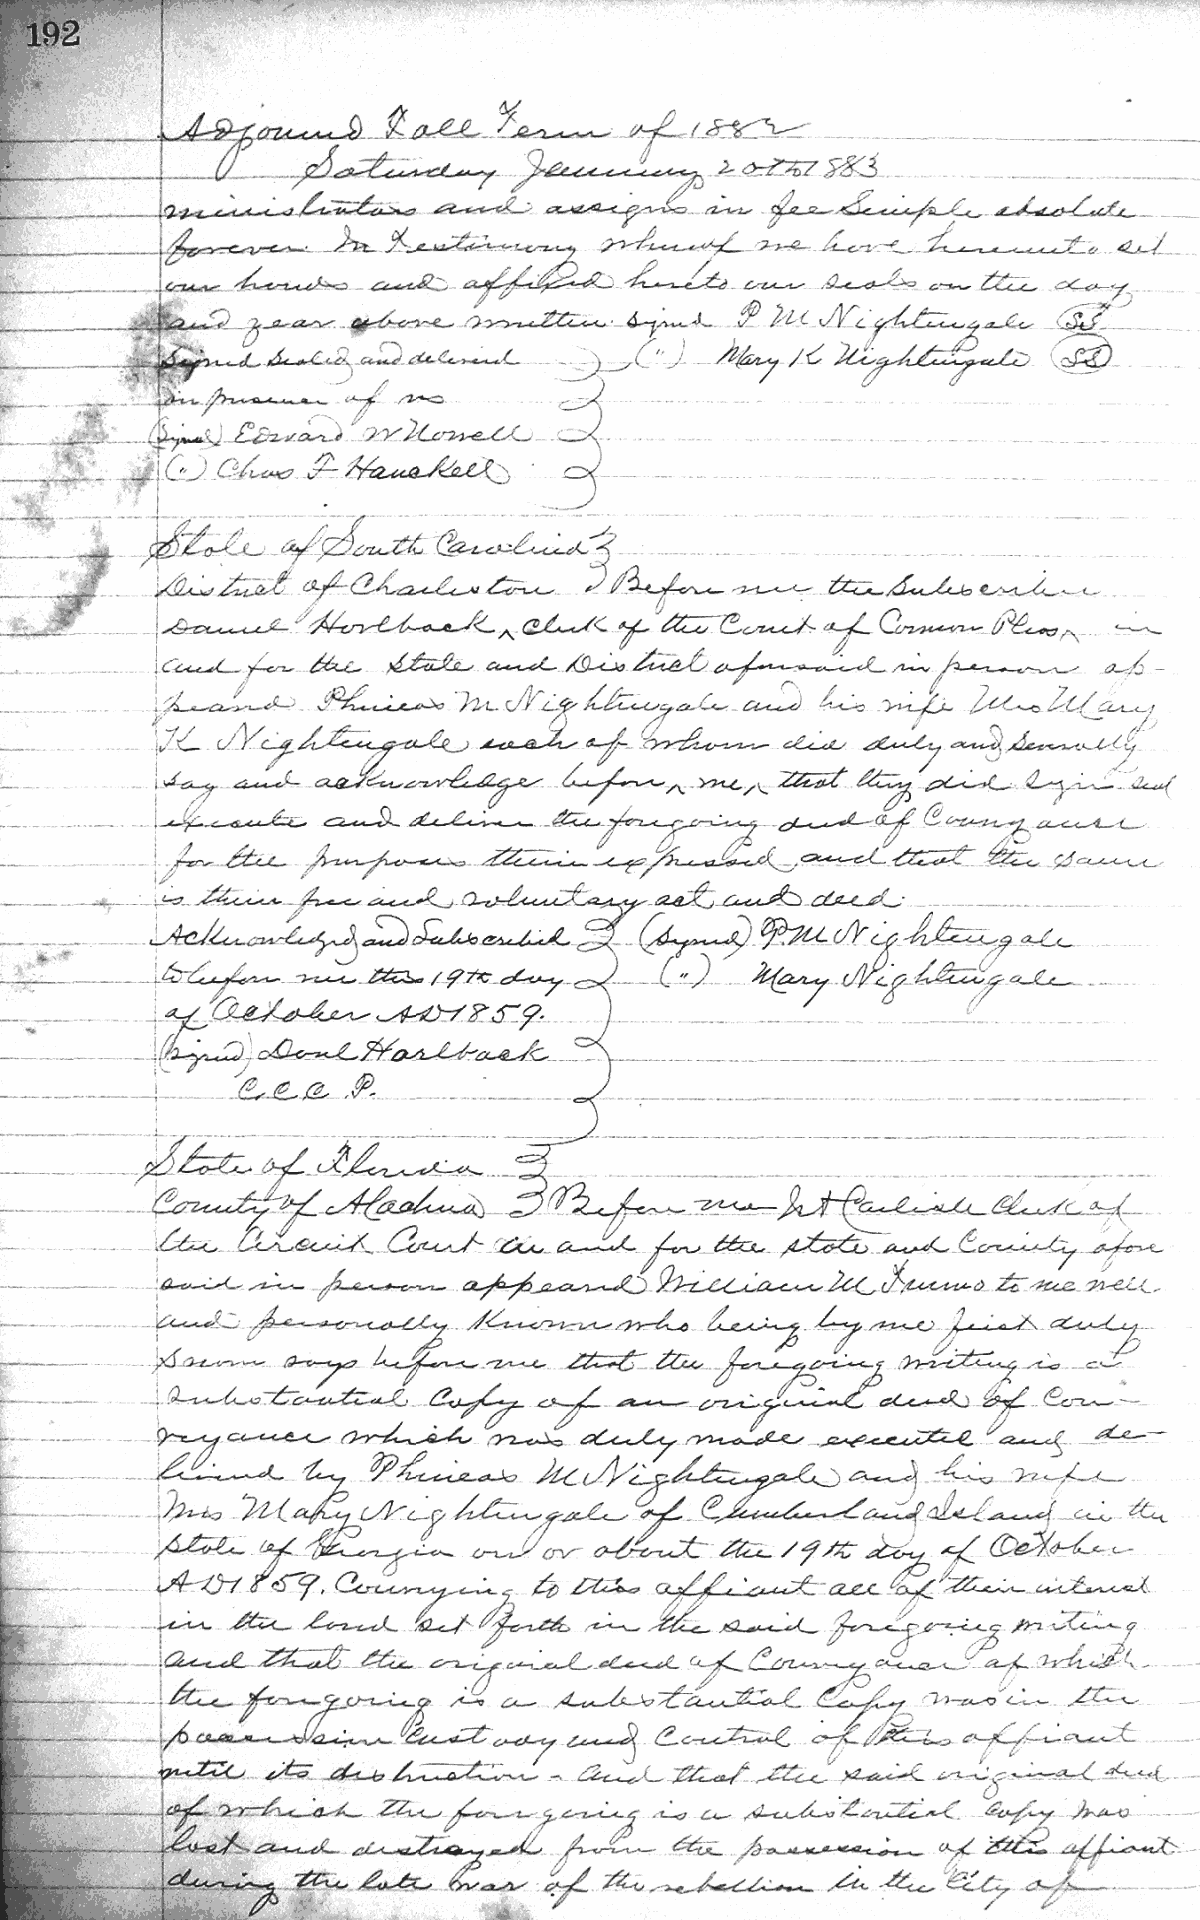 192
Adjourned Fall Term of 1882
Saturday January 20th 1883
ministrators and assigns in fee Simple absolute
forever. In Testimony whereof we have hereunto set
our hands and affixed hereto our seals on the day
and year above written signed P M Nightingale (SS)
Signed Sealed and delivered (") Mary K Nightingale (SS)
in presence of us
(signed) Edward W Nowell
(") Chas F Hanckell
State of South Carolina
District of Charleston Before me the Subscriber
Daniel Horlback, Clerk of the Court of Common Pleas, in
and for the State and District aforesaid in person ap-
peared Phineas M Nightingale and his wife Mrs Mary
K Nightingale each of whom did duly and severally
say and acknowledge before me, that they did sign seal
execute and deliver the foregoing deed of Conveyance
for the purposes therein expressed and that the same
is their free and voluntary act and deed.
Acknowledged and Subscribed (signed) P. M Nightingale
to before me this 19th day (") Mary Nightingale
of October AD 1859.
(signed) Danl Horlback
C. C. C. P.
State of Florida
County of Alachua Before me Carlisle Clerk of
the Circuit Court in and for the state and County afore
said in person appeared William M to me well
and personally known who being by me first duly
Sworn says before me that the foregoing writing is a
substantial Copy of an original deed of Con-
veyance which was duly made executed and de-
livered by Phineas M Nightingale and his wife
Mrs Mary Nightingale of Cumberland Island in the
State of Georgia on or about the 19th day of October
AD 1859. Conveying to this affiant all of their interest
in the land set forth in the said foregoing writing
and that the original deed of Conveyance of which
the foregoing is a substantial Copy was in the
possession Custody and Control of this affiant
until its destruction - and that the said original deed
of which the foregoing is a substantial Copy was
lost and destroyed from the possession of this affiant
during the late war of the rebellion in the City of